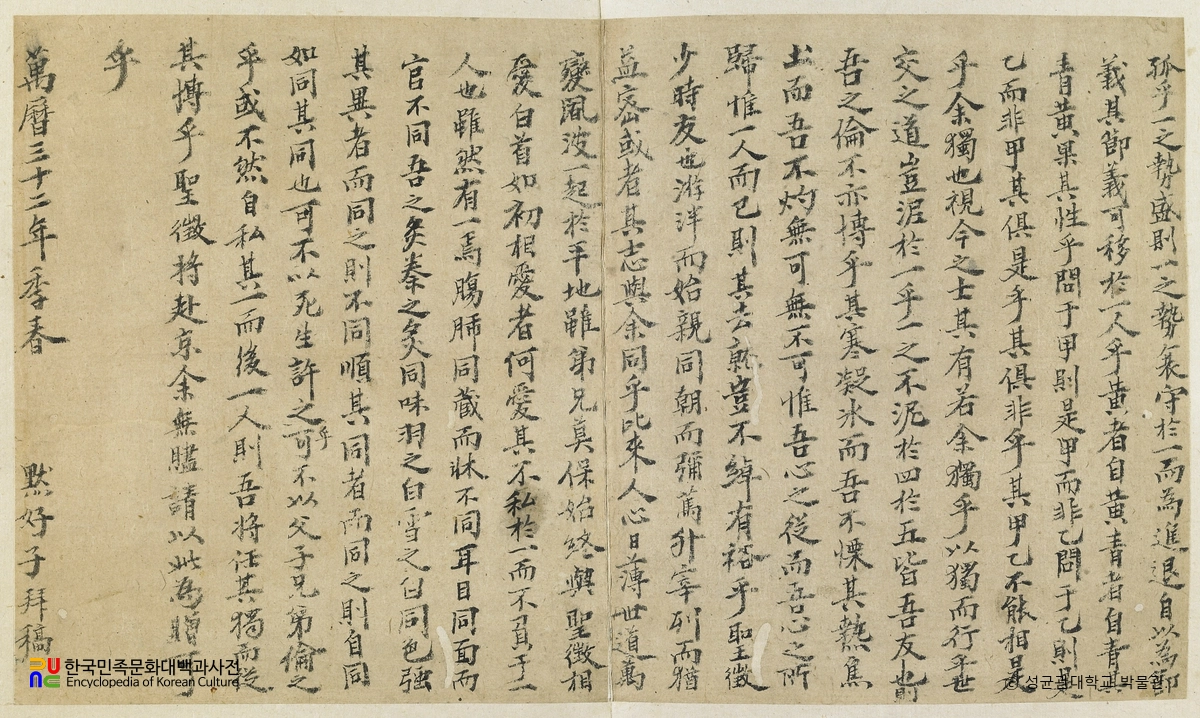 孤乎一之勢盛則一之勢衰守於一而為進退自以為節
義其節義可移於一人乎黃者自黃青者自青其
青黃果其性乎問于甲則是甲而非乙問于乙則是
乙而非甲其俱是乎其俱非乎其甲乙不能相是
乎余獨也視今之士其有若余獨乎以獨而行乎世
交之道豈泥於一乎一之不泥於四於五皆吾友也則
吾之倫不亦博乎其寒凝冰而吾不慄其熱焦
土而吾不灼無可無不可惟吾心之從而吾心之所
歸惟一人而已則其去就豈不綽有裕乎聖徵
少時友也游泮而始親同朝而彌篤升宰列而猶
益密或者其志與余同乎比來人心日薄世道萬
變風波一起於平地雖弟兄莫保始終與聖徵相
愛白首如初相愛者何愛其不私於一而不貳于一
人也雖然有一焉腸肺同藏而牀不同耳目同面而
官不同吾之炙秦之炙同味羽之白雪之白同色強
其異者而同之則不同順其同者而同之則自同
如同其同也可不以死生許之乎可不以父子兄弟倫之
乎或不然自私其一而後一人則吾將任其獨而從
其博乎聖徵將赴京余無贐請以此為贈可
乎
萬曆三十二年季春 默好子拜稿
한국민족문화대백과사전
Encyclopedia of Korean Culture
© 성균관대학교 박물관